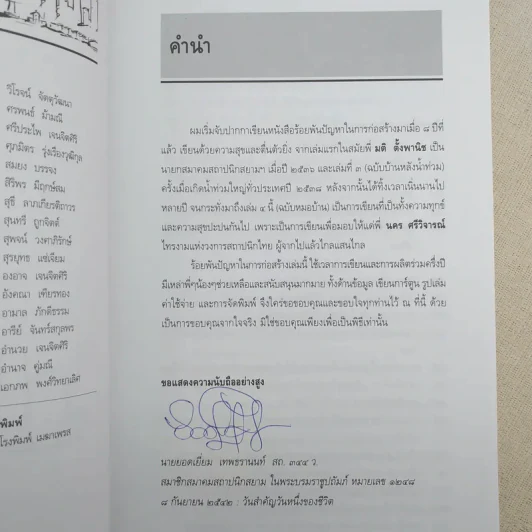 วิโรจน์ จัตตุวัฒนา
ศรพนธ์ ม้ามณี
ศรีประไพ เจนจิตศิริ
ศุภมิตร รุ่งเรืองวุฒิกุล
สมยง บรรจง
สิริพร มีฤกษ์สม
สุธี ลาภเกียรติถาวร
สุนทรี ถูกจิตต์
สุพจน์ วงศาภิรักษ์
สุรยุทธ แซ่เจี่ยม
องอาจ เจนจิตศิริ
อังคณา เทียรทอง
อำมาล ภักดีธรรม
อารีย์ จันทร์สกุลพร
อำนวย เจนจิตศิริ
อำนาจ คู่มณี
เอกภพ พงศ์วิทยาเลิศ
พิมพ์
โรงพิมพ์ เมฆาเพรส
คำนำ
ผมเริ่มจับปากกาเขียนหนังสือร้อยพันปัญหาในการก่อสร้างมาเมื่อ ๘ ปีที่
แล้ว เขียนด้วยความสุขและตื่นตัวยิ่ง จากเล่มแรกในสมัยพี่ มติ ตั้งพานิช เป็น
นายกสมาคมสถาปนิกสยามฯ เมื่อปี ๒๕๓๖ และเล่มที่ ๓ (ฉบับบ้านหลังน้ำท่วม)
ครั้งเมื่อเกิดน้ำท่วมใหญ่ทั่วประเทศปี ๒๕๓๘ หลังจากนั้นได้ทิ้งเวลาเนิ่นนานไป
หลายปี จนกระทั่งมาถึงเล่ม ๔ นี้ (ฉบับหมอบ้าน) เป็นการเขียนที่เป็นทั้งความทุกข์
และความสุขปะปนกันไป เพราะเป็นการเขียนเพื่อมอบให้แด่พี่ นคร ศรีวิจารณ์
ไทรงามแห่งวงการสถาปนิกไทย ผู้จากไปแล้วไกลแสนไกล
ร้อยพันปัญหาในการก่อสร้างเล่มนี้ ใช้เวลาการเขียนและการผลิตร่วมครึ่งปี
มีเหล่าพี่ๆน้องๆช่วยเหลือและสนับสนุนมากมาย ทั้งด้านข้อมูล เขียนการ์ตูน รูปเล่ม
ค่าใช้จ่าย และการจัดพิมพ์ จึงใคร่ขอขอบคุณและขอบใจทุกท่านไว้ ณ ที่นี้ ด้วย
เป็นการขอบคุณจากใจจริง มิใช่ขอบคุณเพียงเพื่อเป็นพิธีเท่านั้น
ขอแสดงความนับถืออย่างสูง
นายยอดเยี่ยม เทพธรานนท์ สถ. ๓๔๔ ว.
สมาชิกสมาคมสถาปนิกสยาม ในพระบรมราชูปถัมภ์ หมายเลข ๑๒๔๘
๘ กันยายน ๒๕๔๒ : วันสำคัญวันหนึ่งของชีวิต